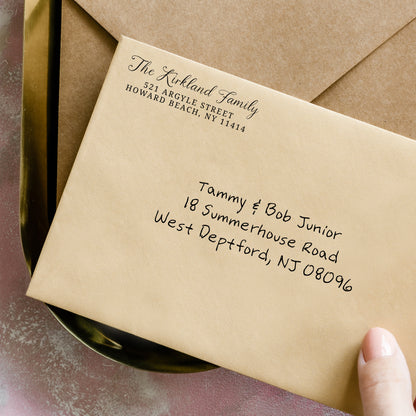 The Kirkland Family
521 ARGYLE STREET
HOWARD BEACH, NY 11414
Tammy & Bob Junior
18 Summerhouse Road
West Deptford, NJ 08096